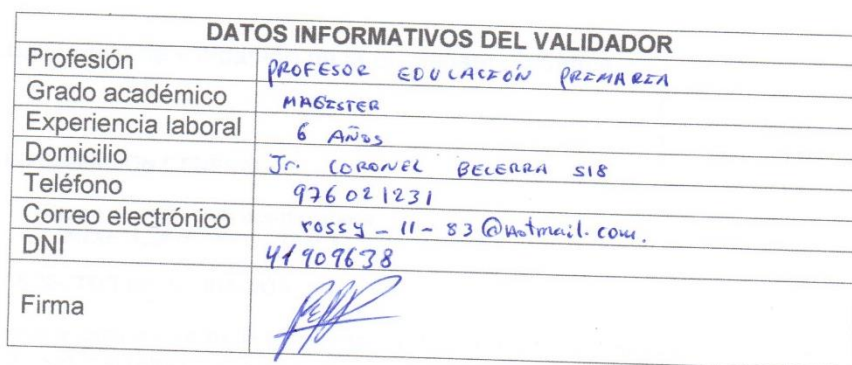 DATOS INFORMATIVOS DEL VALIDADOR
Profesión PROFESOR EDUCACIÓN PRIMARIA
Grado académico MAGISTER
Experiencia laboral 6 AÑOS
Domicilio Jr. CORONEL BECERRA 518
Teléfono 976021231
Correo electrónico rossy_11_83@Hotmail.com.
DNI 41909638
Firma